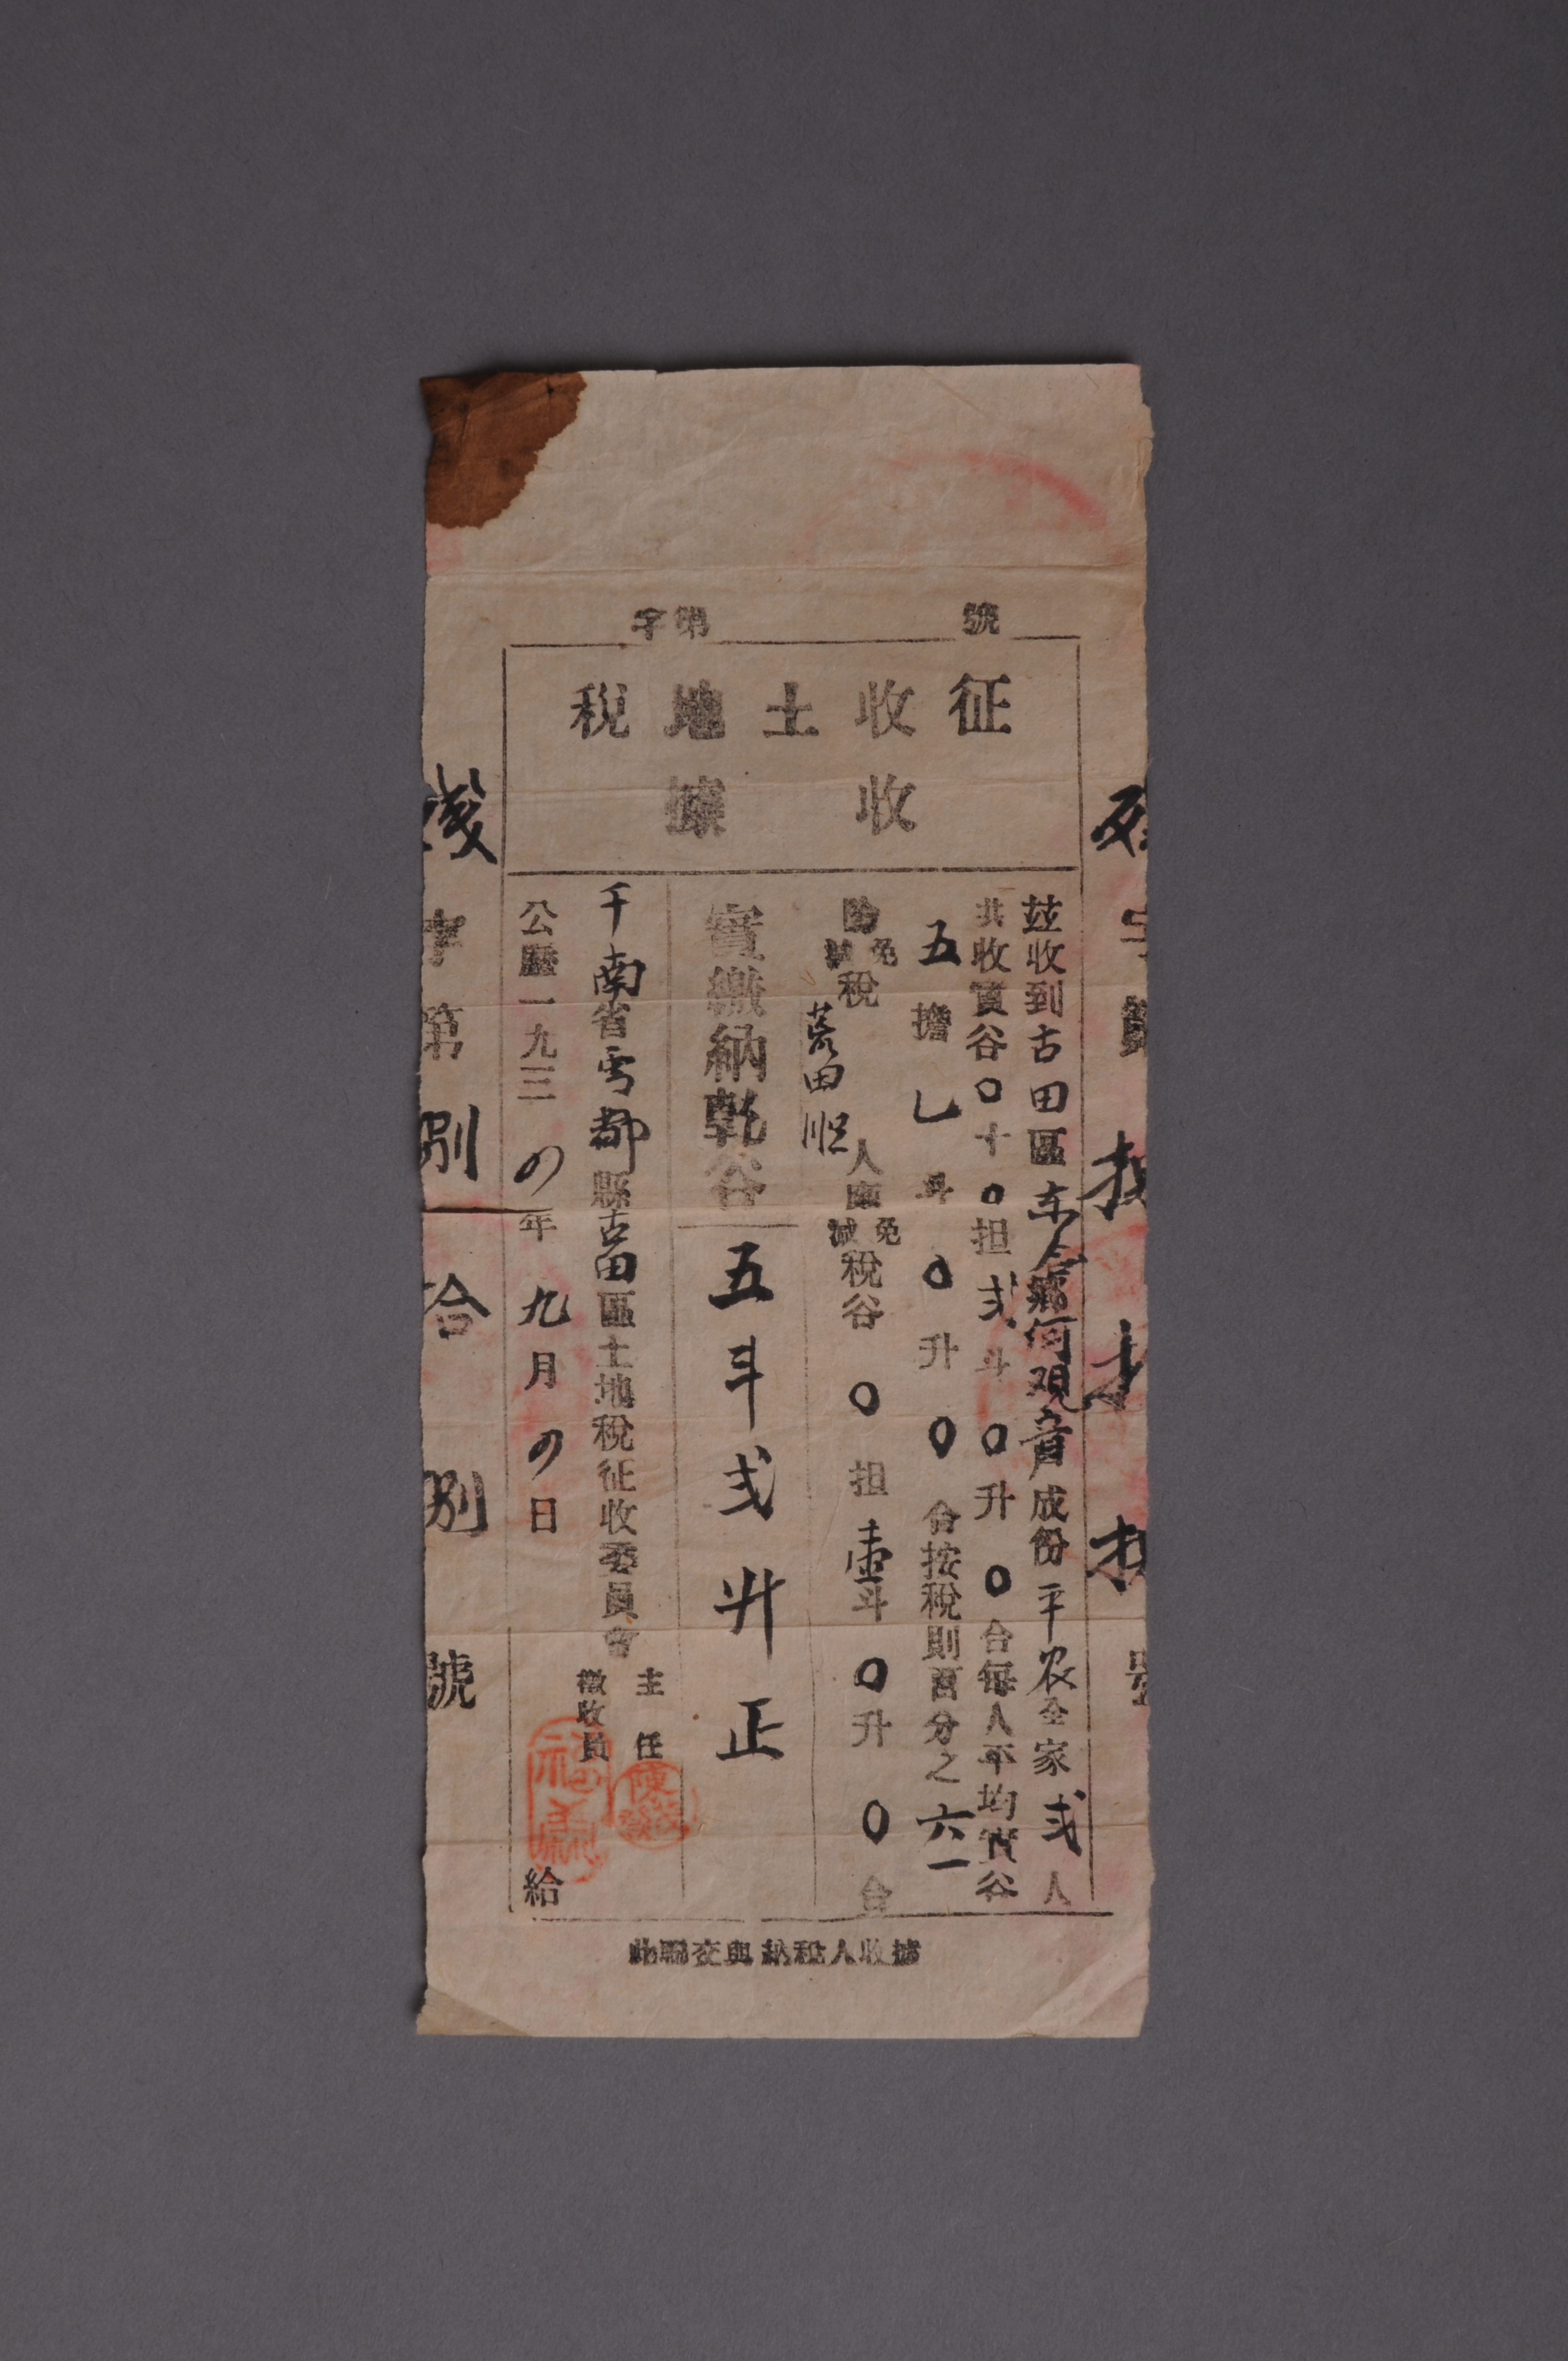 字第 號
征收土地稅
收據
茲收到古田區东人鄉何观音户成份平农全家弍人
共收實谷〇十〇担弍斗〇升〇合每人平均實谷
五擔乚斗〇升〇合按稅則百分之六一
因免減稅荒田 人應免減稅谷〇担壹斗〇升〇合
實繳納乾谷五斗弍升正
干南省雩都縣古田區土地稅征收委員會主任
徵收員
公曆一九三の年九月の日 給
字第捌拾捌號
此聯交與納稅人收據